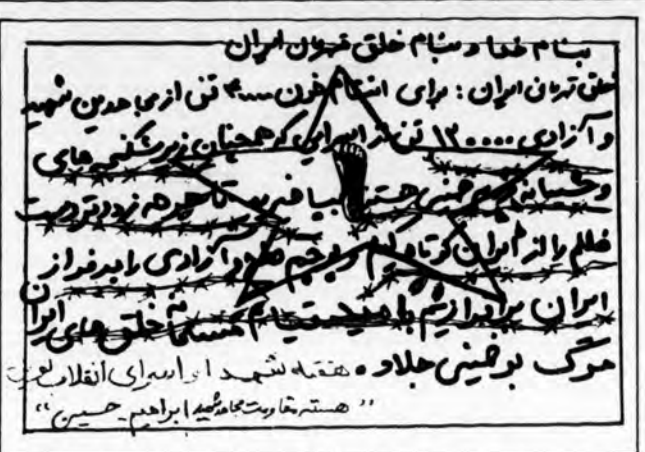 بنام خدا و بنام خلق قهرمان ایران
خلق قهرمان ایران : برای انتقام خون ۴۰۰۰۰ تن از مجاهدین شهید
و آزادی ۱۳۰۰۰۰ تن از اسرایی که همچنان زیر شکنجه های
وحشیانه خمینی هستند بپا خیزید تا هر چه زودتر دست
ظلم را از ایران کوتاه کنیم و پرچم آزادی را بر فراز
ایران برافرازیم با امید قیام مسلحانه خلق های ایران
مرگ بر خمینی جلاد • هفته شهدا و اسرای انقلاب نوین
"هسته مقاومت مجاهد شهید ابراهیم حسین"